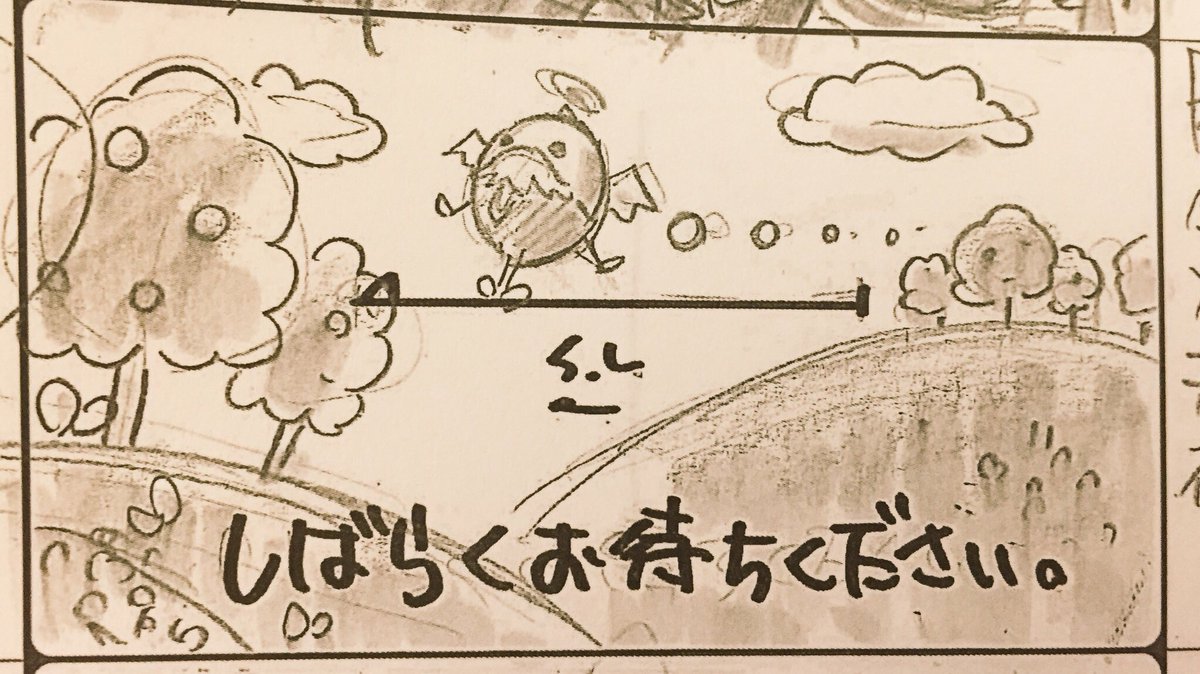 S.L
しばらくお待ちください。